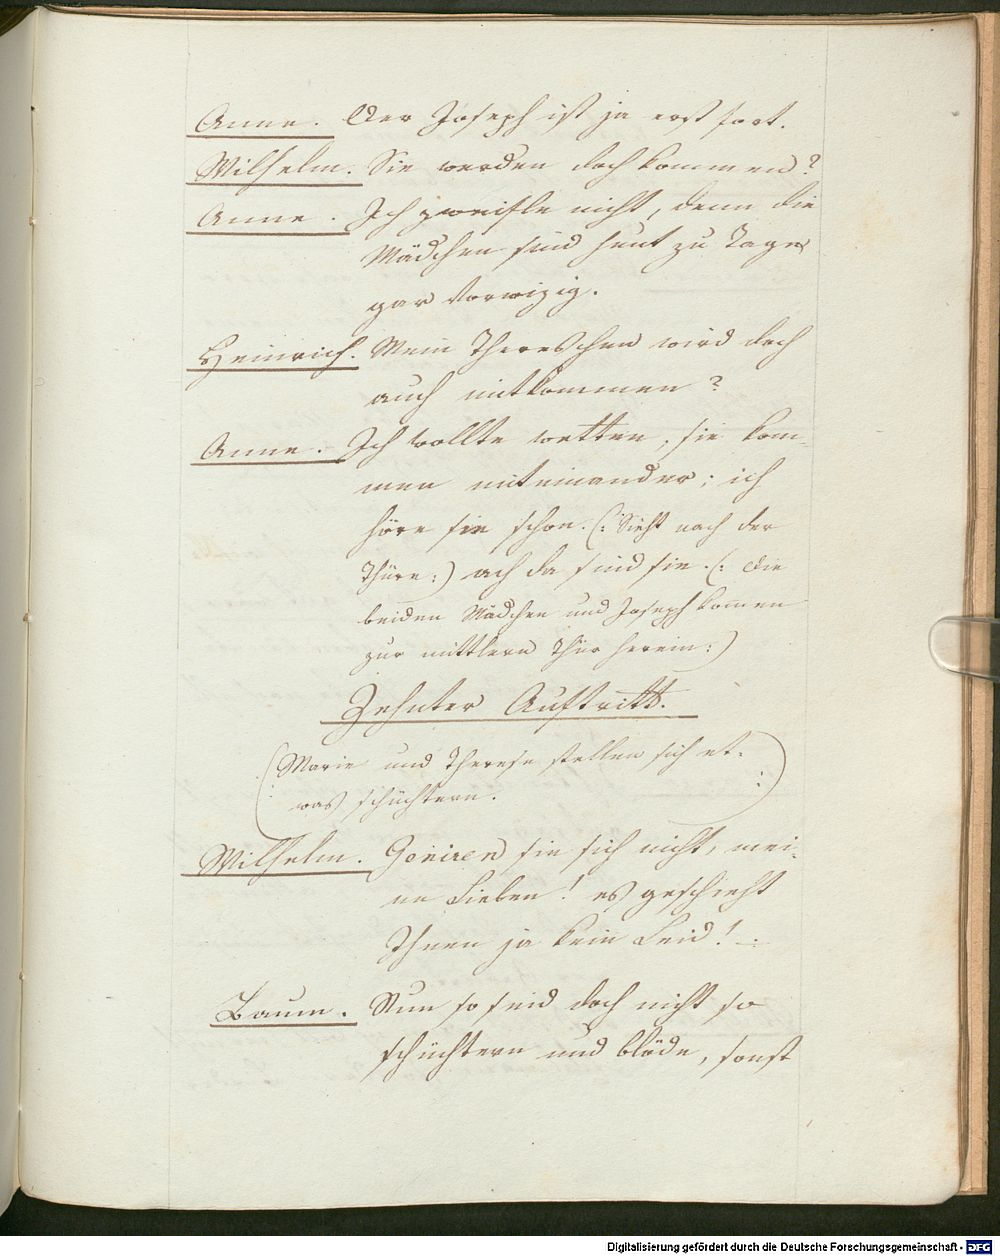 Anne. Der Joseph ist ja erst fort.
Wilhelm. Sie werden doch kommen?
Anne. Ich zweifle nicht, denn die
Mädchen sind heut zu Tage
gar vorwizig.
Heinrich. Mein Thereschen wird doch
auch mitkommen?
Anne. Ich wollte wetten, sie kom-
men miteinander; ich
höre sie schon. (: Sieht nach der
Thüre :) ach da sind sie. (: die
beiden Mädchen und Joseph komen
zur mittlern Thür herein :)
Zehnter Auftritt.
(Marie und Therese stellen sich et-
was schüchtern. :)
Wilhelm. Geniren sie sich nicht, mei-
ne Lieben! es geschieht
Ihnen ja kein Leid! -
Baum. Nun so seid doch nicht so
schüchtern und blöde, sonst
Digitalisierung gefördert durch die Deutsche Forschungsgemeinschaft - DFG